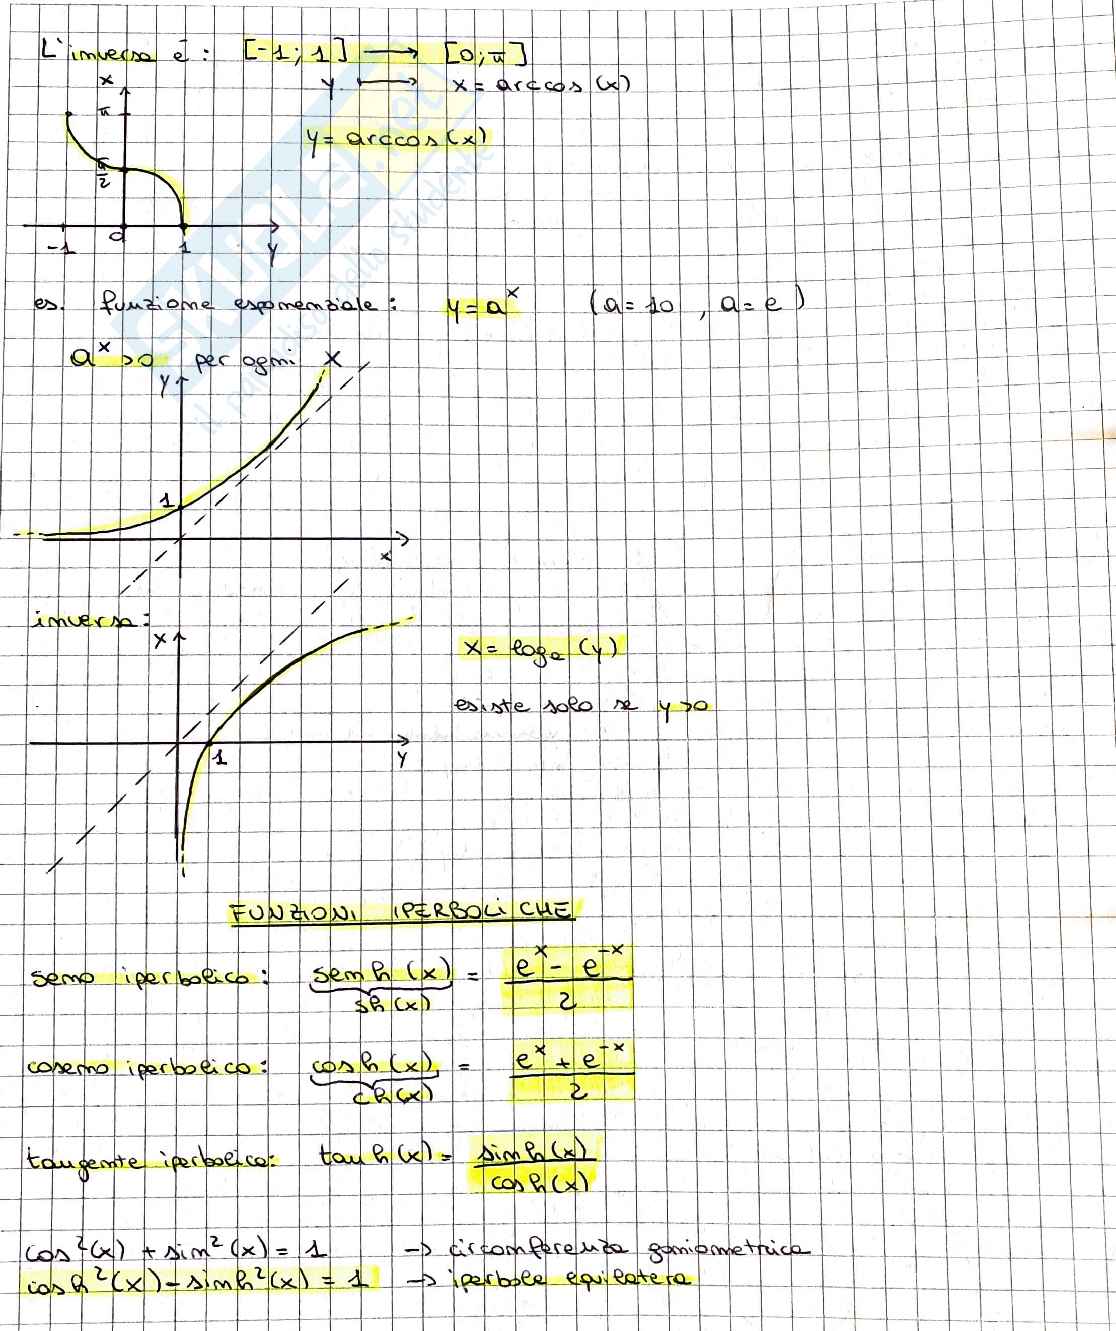 L'inversa è: [-1; 1] → [0; π]
y ↦ x = arccos(x)
y = arccos(x)
x
π
π/2
-1 0 1 y
es. funzione esponenziale: y = a^x (a = 10, a = e)
a^x > 0 per ogni x
y
1
x
inversa:
x
x = log_a (y)
esiste solo se y > 0
1 y
FUNZIONI IPERBOLICHE
seno iperbolico: senh(x) = (e^x - e^-x)/2
sh(x)
coseno iperbolico: cosh(x) = (e^x + e^-x)/2
ch(x)
tangente iperbolica: tanh(x) = sinh(x)/cosh(x)
cos²(x) + sin²(x) = 1 → circonferenza goniometrica
cosh²(x) - sinh²(x) = 1 → iperbole equilatera